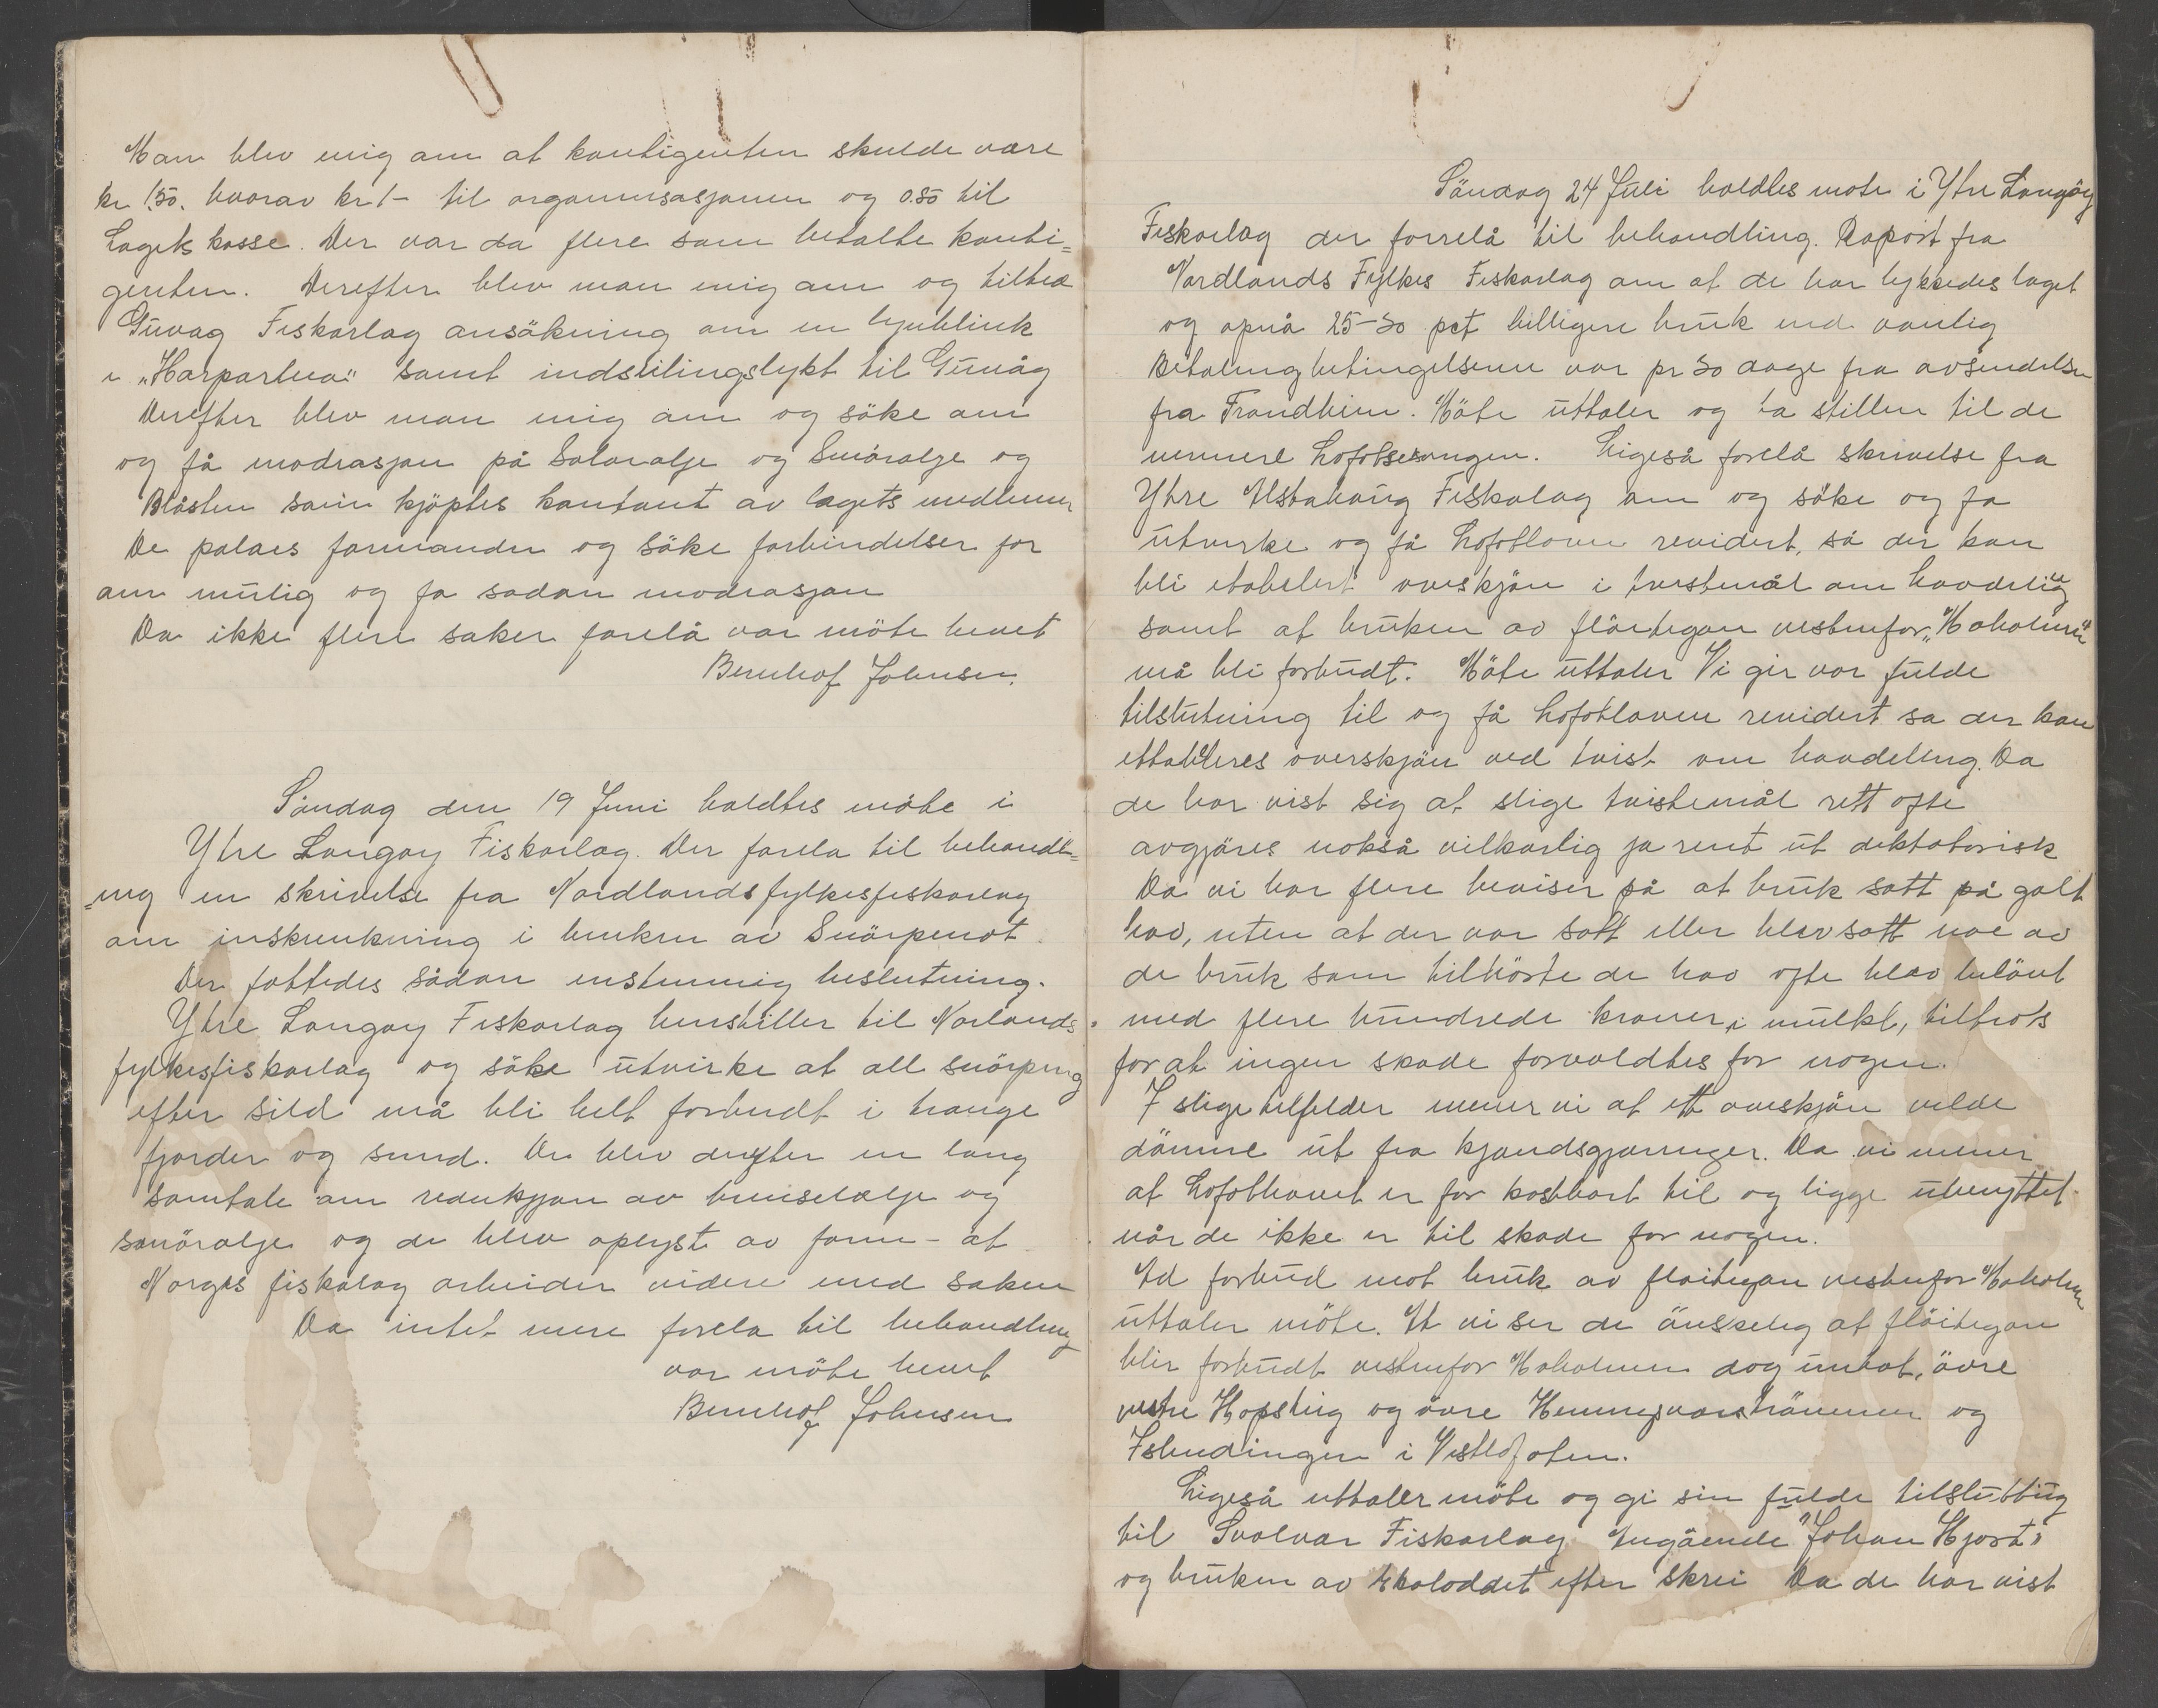 Man blev enig om at kontigenten skulde være
kr 1.50. hvorav kr 1- til organisasjonen og 0.50 til
Lagets kasse. Der var da flere som betalte konti=
genten. Derefter blev man enig om og tiltræ
Guvåg Fiskarlag ansökning om en lynblink
i „Harparlua" samt indstilingslykt til Guvåg
Derefter blev man enig om og söke om
og få modrasjon på Solaralje og Smöralje og
Blåsten som kjöptes kontant av lagets medlemer
De palaes formanden og söke forbindelser for
om mulig og fa sadan modrasjon
Da ikke flere saker forelå var möte hevet
Bernhof Johnsen.
Söndag den 19 Juni holdtes möte i
Ytre Langöy Fiskarlag. Der forela til behandl=
=ing en skrivelse fra Nordlandsfylkesfiskarlag
om inskrenkning i bruken av Snörpenot.
Der fattedes sådan enstemmig beslutning.
Ytre Langöy Fiskarlag henstiller til Norlands
fylkesfiskarlag og söke utvirke at all snörping
efter sild må bli helt forbudt i trange
fjorder og sund. Der blev drefter en lang
samtale om reduksjon av brenselolje og
smöralje og de blev oplyst av form- at
Norges fiskalag arbeider videre med saken
Da intet mere forela til behandling
var möte hevet
Bernhof Johnsen
Söndag 24 Juli holdtes möte i Ytre Langöy
Fiskarlag der forrelå til behandling. Raport fra
Nordlands Fylkes Fiskarlag om at de har lykkedes laget
og opnå 25-30 pct billigere bruk end vanlig
Betalingbetingelsene var pr 30 dage fra avsendelse
fra Trondheim. Möte uttaler og ta stillen til de
nermere Lofotsesongen. Ligeså forelå skrivelse fra
Ytre Alstahaug Fiskalag om og söke og fa
utvirke og få Lofotloven revidert, så der kan
bli etabelert overskjön i tvistemål om havdeling
samt at bruken av flöitegarn vestenfor „Moholmen"
må bli forbudt. Möte uttaler Vi gir vor fulde
tilslutning til og få Lofotloven revidert sa der kan
ettableres overskjön ved tvist om havdeling. Da
de har vist sig at slige tvistemål rett ofte
avgjöres nokså vilkarlig ja rent ut diktatorisk
Da vi har flere beviser på at bruk satt på galt
hav, uten at der var satt eller blev satt noe av
de bruk som tilhörte de hav ofte blev belönt
med flere hundrede kroner i mulkt, tiltrots
for at ingen skade forvoldtes for nogen.
I slige tilfelder mener vi at ett overskjön vilde
dömme ut fra kjendsgjerninger. Da vi mener
at Lofothavet er for kostbart til og ligge ubenyttet
når de ikke er til skade for nogen.
Ad forbud mot bruk av flöitegarn vestenfor Moholmen
uttaler möte. At vi ser de önskelig at flöitegarn
blir forbudt vestenfor Moholmen dog untat, övre
vestre Hopsteig og övre Henningsværströmmen og
Isbudingen i Vestlofoten.
Ligeså uttaler möte og gi sin fulde tilsluttnig
til Svolvær Fiskarlag. Angående "Johan Hjort"
og bruken av ekoloddet efter skrei Da de har vist